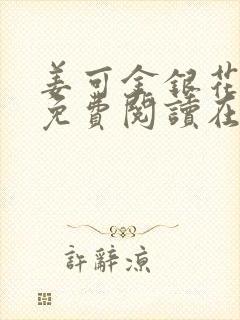 姜可金銀花
免費閱讀在
許辭涼